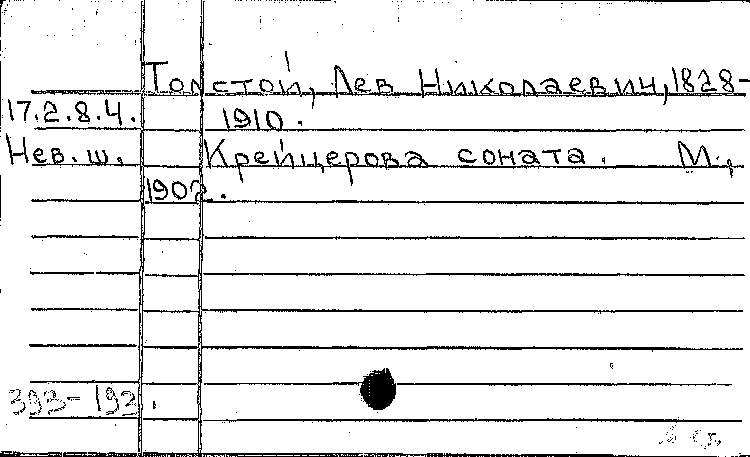 Толстой, Лев Николаевич, 1828-
17.2.8.4. 1910.
Нев. ш. Крейцерова соната. М.,
1902.
393-193.